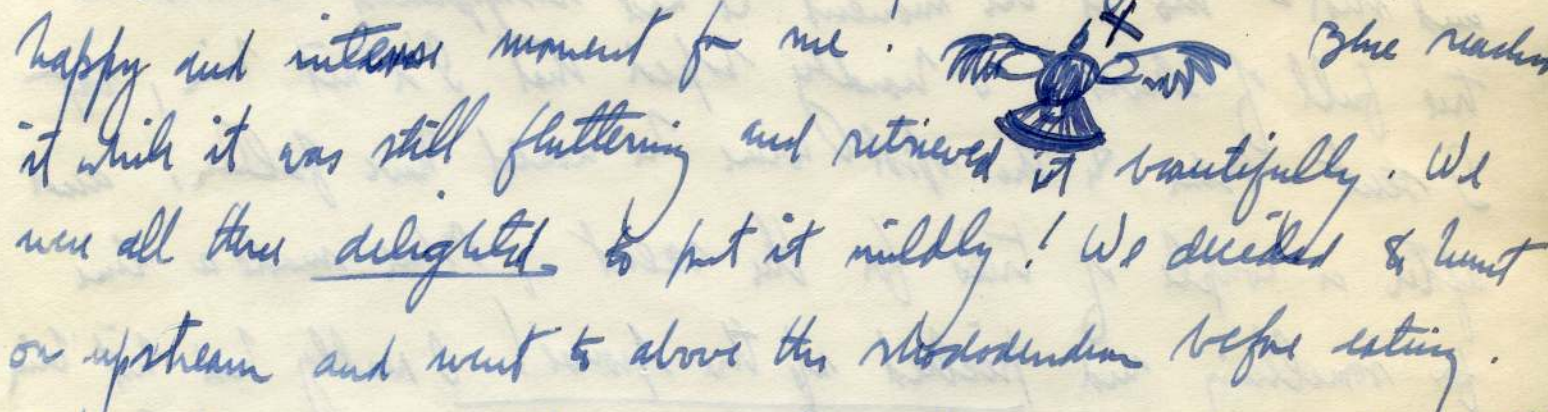 happy and intense moment for me! Blue reached
it while it was still fluttering and retrieved it beautifully. We
were all three delighted to put it mildly! We decided to hunt
on upstream and went to above the rhododendron before eating.